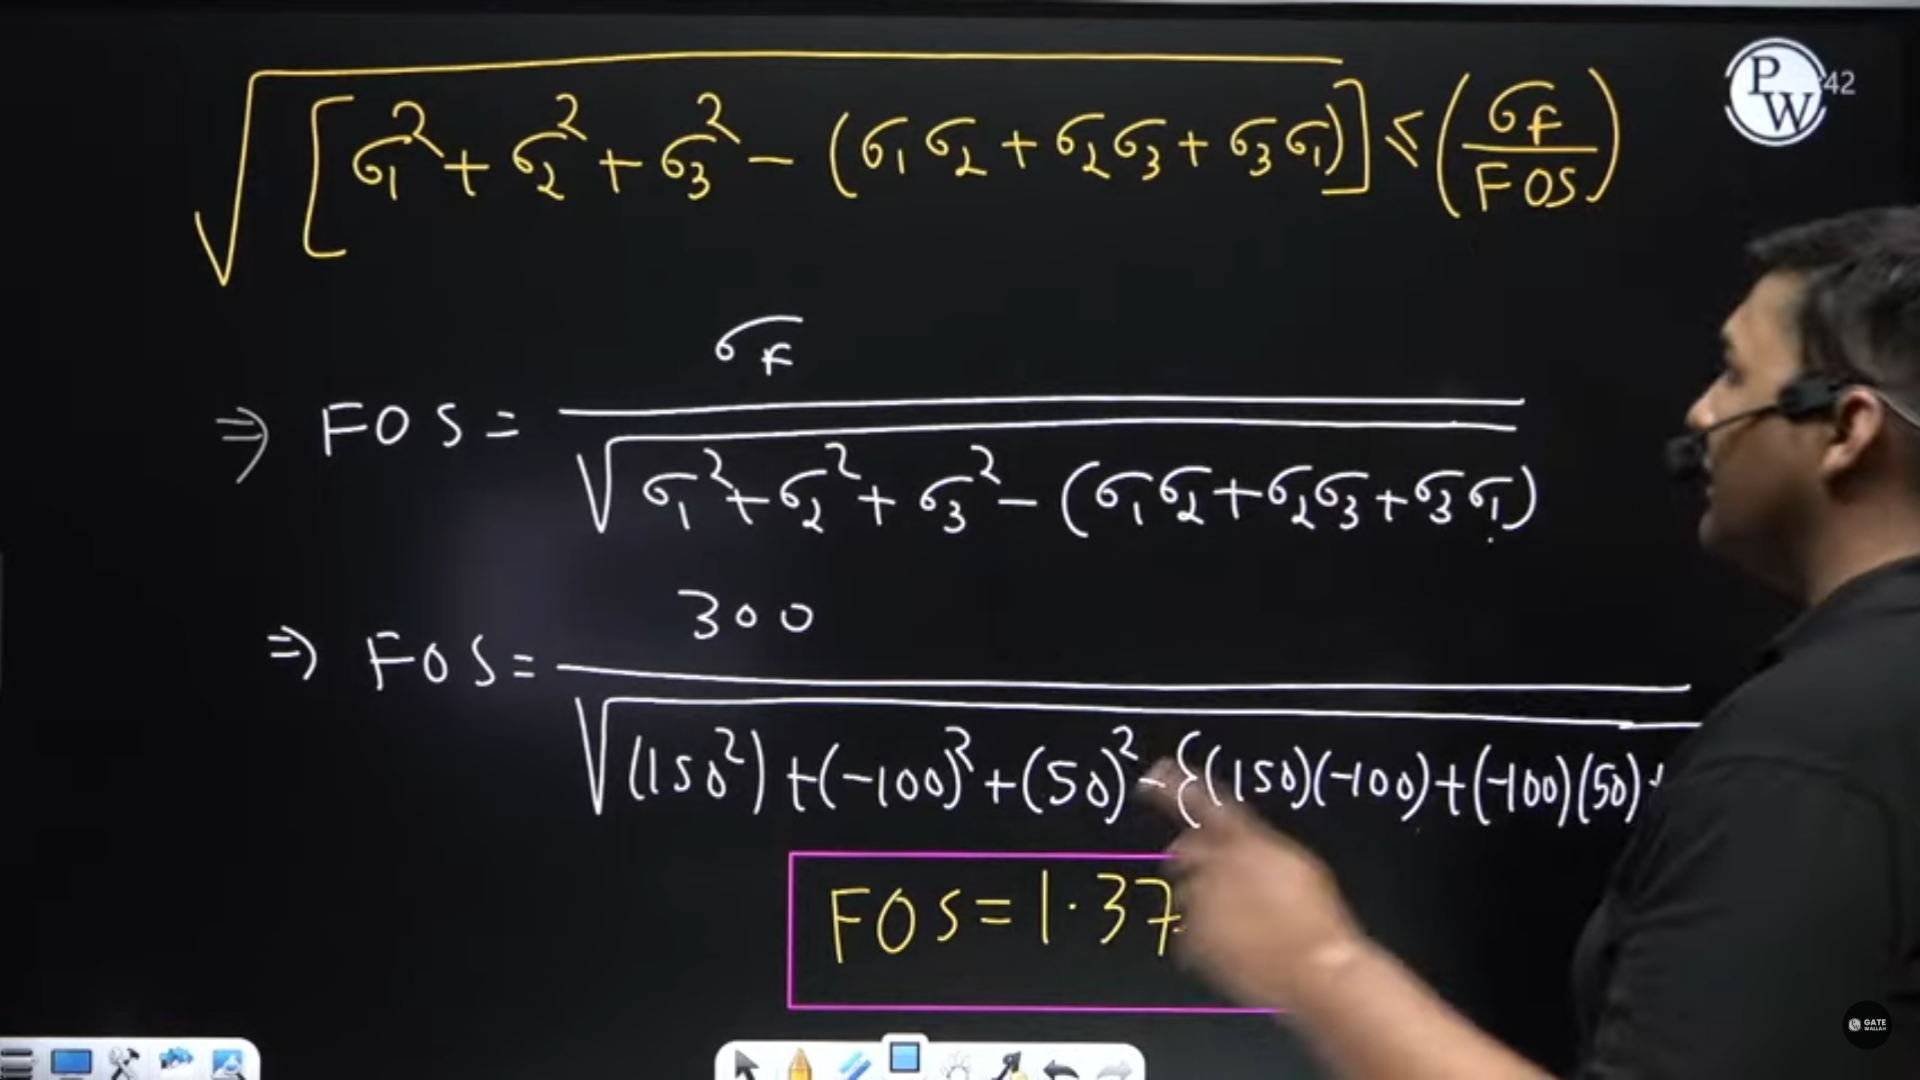 PW :42
√[σ₁² + σ₂² + σ₃² - (σ₁σ₂ + σ₂σ₃ + σ₃σ₁)] ≤ (σf/FOS)
⇒ FOS = σf / √σ₁² + σ₂² + σ₃² - (σ₁σ₂ + σ₂σ₃ + σ₃σ₁)
⇒ FOS = 300 / √(150²) + (-100)² + (50)² - {(150)(-100) + (-100)(50) +
FOS = 1.37
GATE
WALLAH